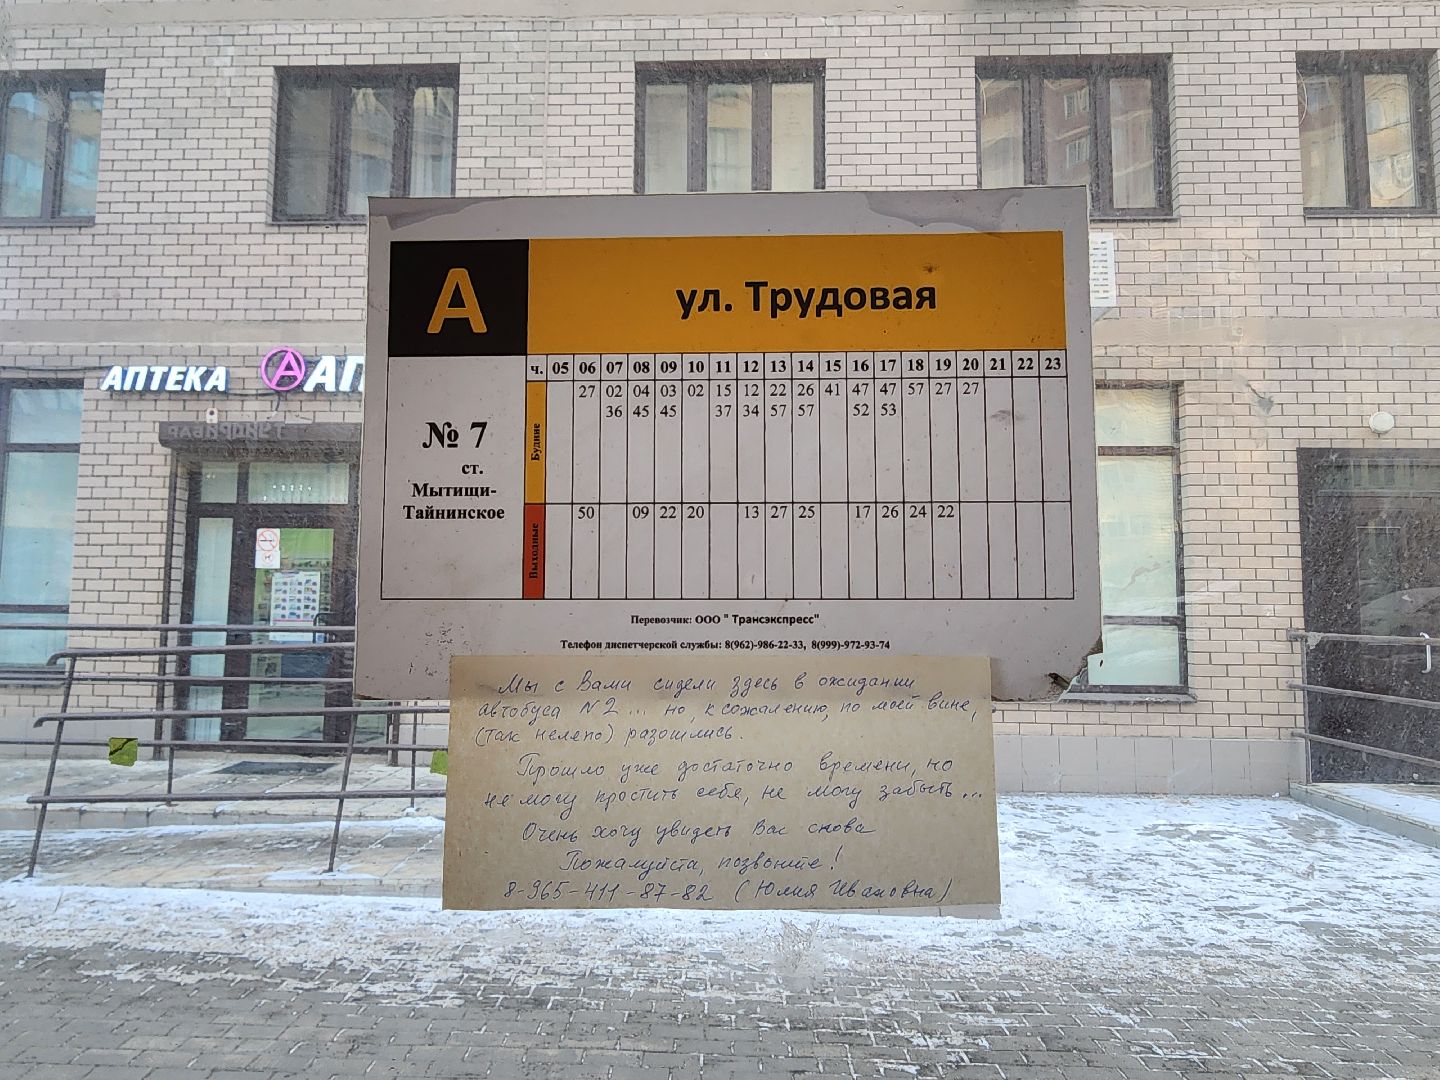 АПТЕКА
А
ул. Трудовая
№ 7
ст.
Мытищи-
Тайнинское
ч. 05 06 07 08 09 10 11 12 13 14 15 16 17 18 19 20 21 22 23
Будние
27 02 04 03 02 15 12 22 26 41 47 47 57 27 27
36 45 45 37 34 57 57 52 53
Выходные
50 09 22 20 13 27 25 17 26 24 22
Перевозчик: ООО " Трансэкспресс"
Телефон диспетчерской службы: 8(962)-986-22-33, 8(999)-972-93-74
Мы с Вами сидели здесь в ожидании
автобуса N 2 ... но, к сожалению, по моей вине,
(так нелепо) разошлись.
Прошло уже достаточно времени, но
не могу простить себя, не могу забыть...
Очень хочу увидеть Вас снова
Пожалуйста, позвоните!
8-965-411-87-82 (Юлия Ивановна)